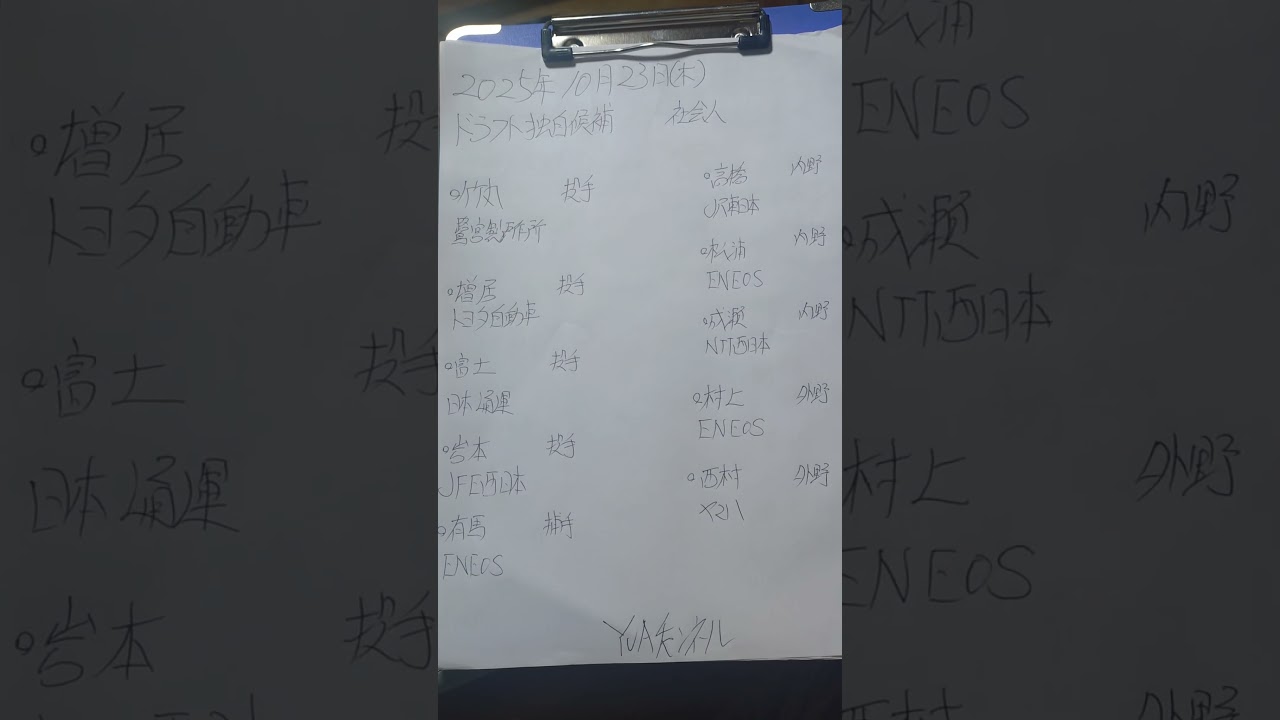 2025年10月23日(木)
ドラフト独自候補 社会人
○竹丸 投手
鷺宮製作所
○増居 投手
トヨタ自動車
○富士 投手
日本通運
○岩本 投手
JFE西日本
○有馬 捕手
ENEOS
○高橋 内野
JR東日本
○松浦 内野
ENEOS
○成瀬 内野
NTT西日本
○村上 外野
ENEOS
○西村 外野
ヤマハ
YUAチンネル